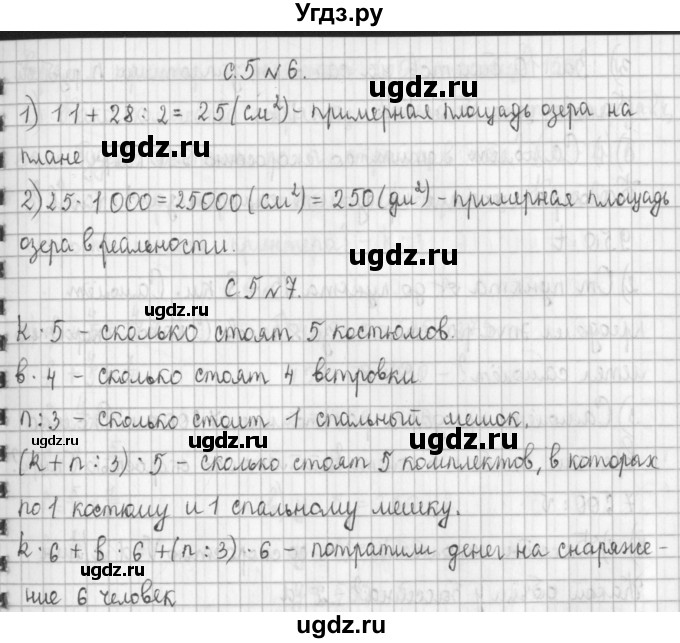 Угдз.ру
с.5 № 6.
1) 11 + 28 : 2 = 25 (см²) - примерная площадь озера на
плане
ugdz.ru
ugdz.ru
2) 25 · 1 000 = 25000 (см²) = 250 (дм²) - примерная площадь
озера в реальности.
ugdz.ru
с.5 № 7.
ugdz.ru
k · 5 - сколько стоят 5 костюмов.
в · 4 - сколько стоят 4 ветровки
n : 3 - сколько стоит 1 спальный мешок.
ugdz.ru
ugdz.ru
ugdz.ru
(k + n : 3) · 5 - сколько стоят 5 комплектов, в которых
по 1 костюму и 1 спальному мешку.
k · 6 + в · 6 + (n : 3) · 6 - потратили денег на снаряже -
ugdz.ru
ние 6 человек
ugdz.ru